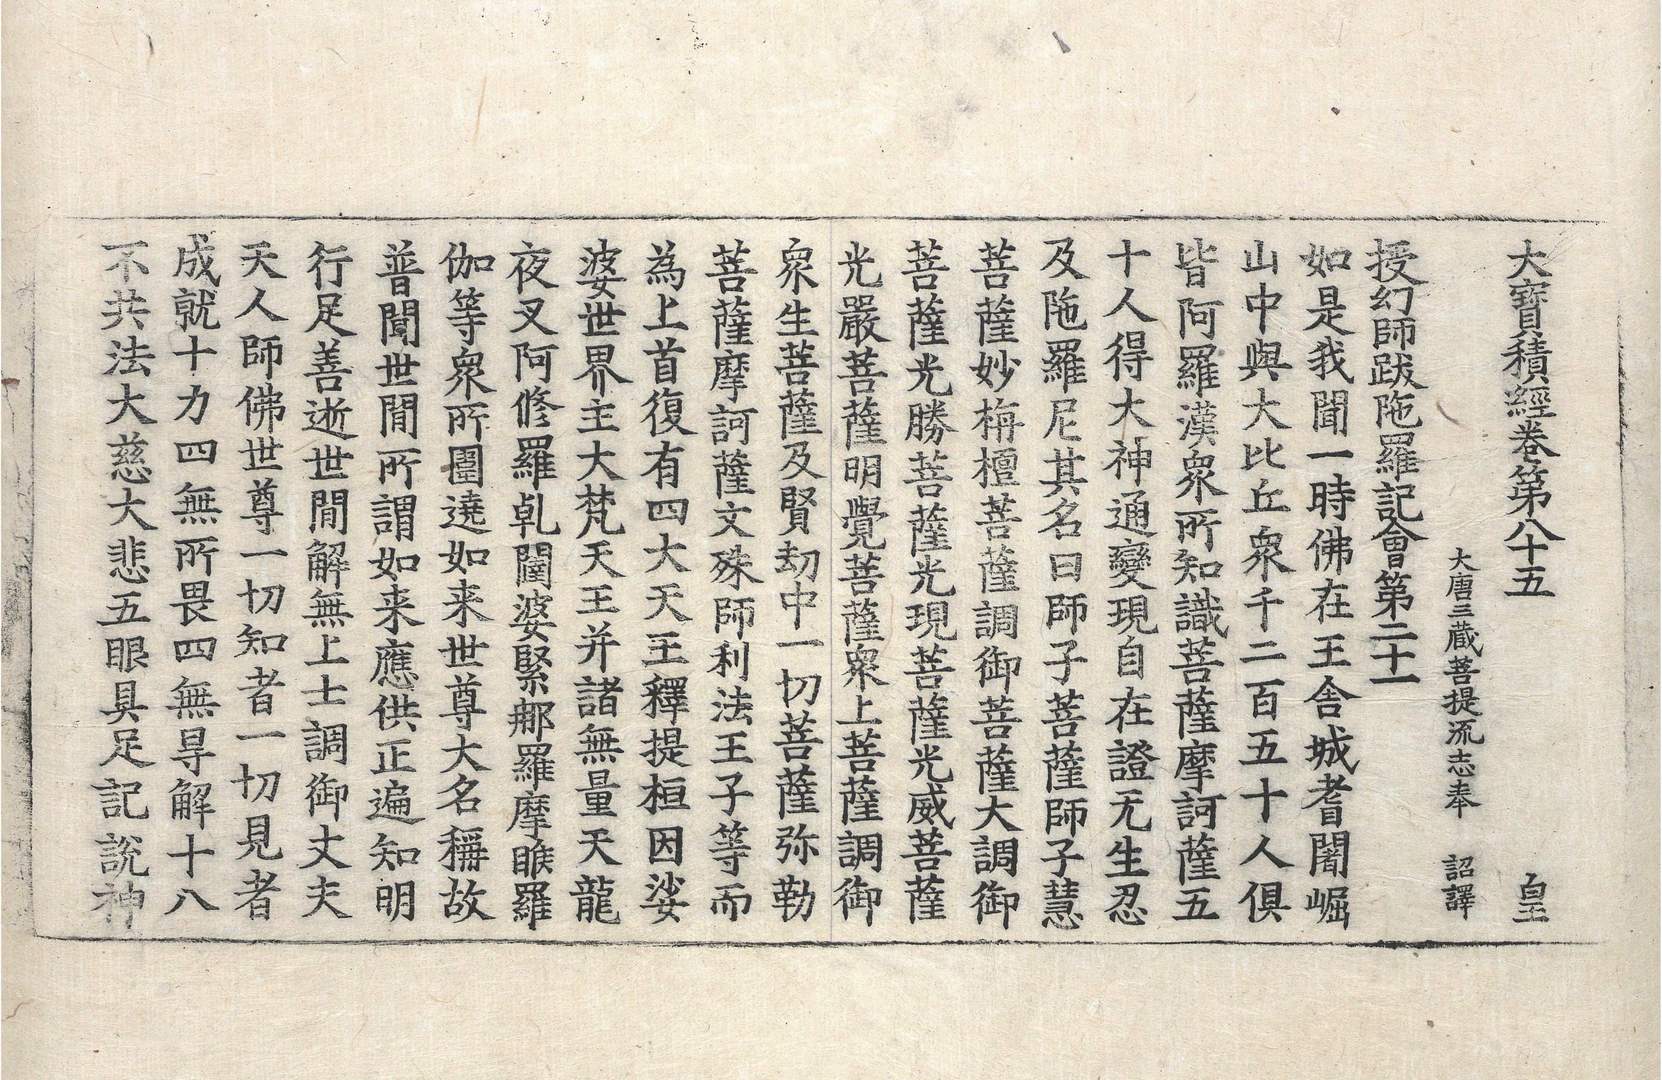 大寶積經卷第八十五 皇
大唐三藏菩提流志奉 詔譯
授幻師跋陁羅記會第二十一
如是我聞一時佛在王舍城耆闍崛
山中與大比丘衆千二百五十人俱
皆阿羅漢衆所知識菩薩摩訶薩五
十人得大神通變現自在證无生忍
及陁羅尼其名曰師子菩薩師子慧
菩薩妙栴檀菩薩調御菩薩大調御
菩薩光勝菩薩光現菩薩光威菩薩
光嚴菩薩明覺菩薩衆上菩薩調御
衆生菩薩及賢劫中一切菩薩弥勒
菩薩摩訶薩文殊師利法王子等而
為上首復有四大天王釋提桓因娑
婆世界主大梵天王并諸無量天龍
夜叉阿修羅乹闥婆緊那羅摩睺羅
伽等衆所圍遶如来世尊大名稱故
普聞世間所謂如来應供正遍知明
行足善逝世間解無上士調御丈夫
天人師佛世尊一切知者一切見者
成就十力四無所畏四無㝵解十八
不共法大慈大悲五眼具足記說神